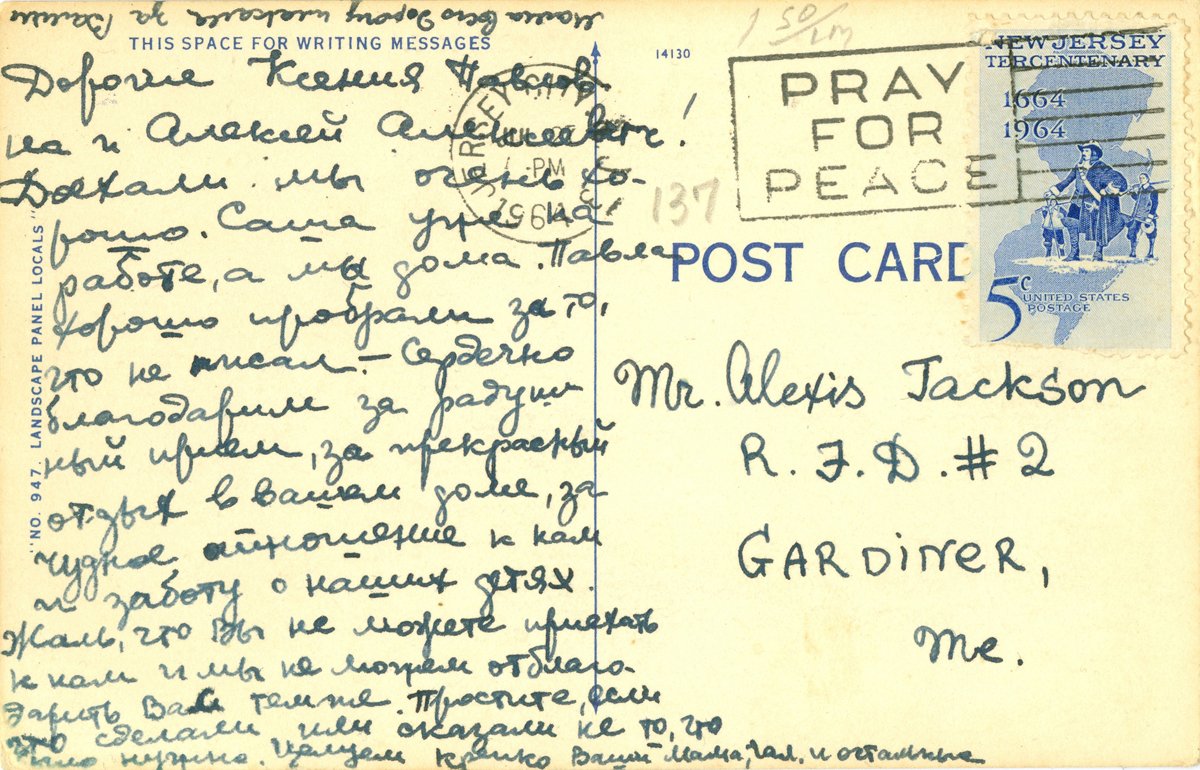 Мама всю дорогу плакала за Вами
THIS SPACE FOR WRITING MESSAGES
Дорогие Ксения Павлов-
на и Алексей Алексеевич!
Доехали мы очень хо-
рошо. Саша уже на
работе, а мы дома. Павла
хорошо пробрали за то,
что не писал. – Сердечно
благодарим за радуш
ный прием, за прекрасный
отдых в вашем доме, за
чудное отношение к нам
и заботу о наших детях.
Жаль, что Вы не можете приехать
к нам и мы не можем отблаго-
дарить Вас тем же. Простите, если
что сделали или сказали не то, что
было нужно. Целуем крепко Ваши Мама, Гал. и остальные
"NO. 947. LANDSCAPE PANEL LOCALS"
14130
1 50/
137
JERSEY CITY
PM
1964
PRAY
FOR
PEACE
NEW JERSEY
TERCENTENARY
1664
1964
5c
UNITED STATES
POSTAGE
POST CARD
Mr. Alexis Jackson
R.F.D. #2
GARDINER,
Me.